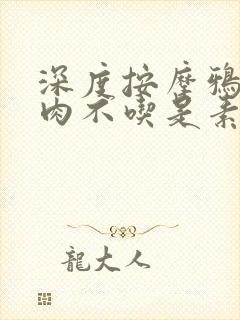 深度按摩鴉
肉不喫是素
龍大人